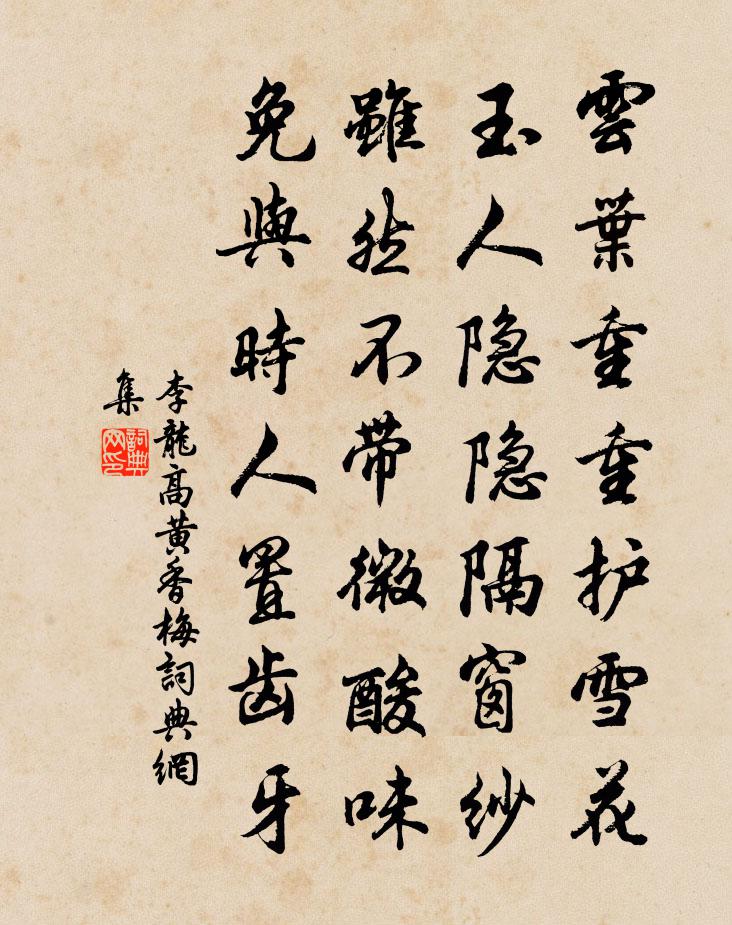 雲葉重重护雪花
玉人隐隐隔窗纱
雖然不带微酸味
免與時人置齿牙
李龍高黄香梅詞典網
集
詞典
网印